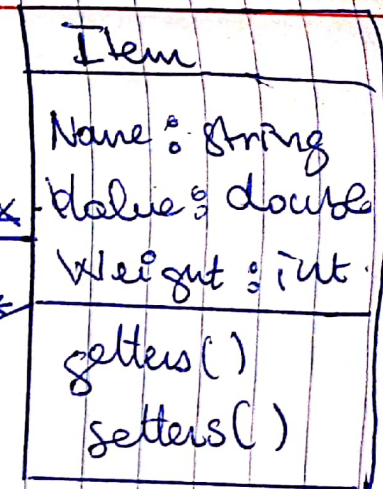 Item
Name : string
Value : double
Weight : int.
getters()
setters()